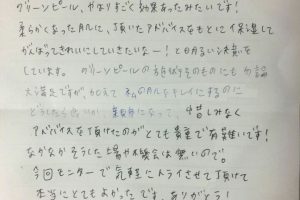 グリーンピール、やはりすごく効果あったみたいです!
柔らかくなったお肌に、頂いたアドバイスをもとに保湿して
がんばってきれいにしていきたいなー!と明るい決意を
しています。グリーンピールの施術そのものにも勿論
大満足ですが、加えて私のお肌をキレイにするのに
どうしたら良いか、親身になって、惜しみなく
アドバイスを頂けたのがとても貴重で有難いです!
なかなかそうした場や機会は無いので。
今回モニターで気軽にトライさせて頂けて
本当にとてもよかったです。ありがとう!